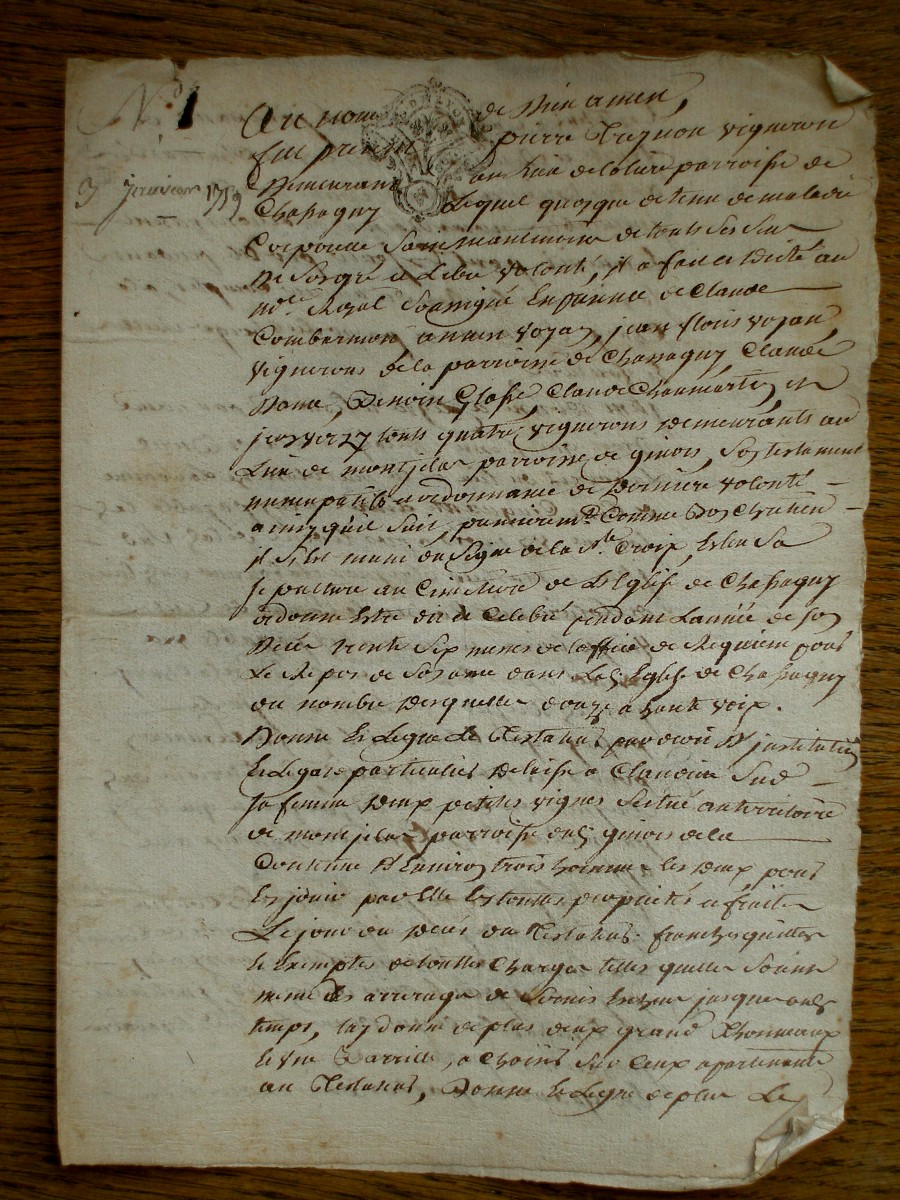 N° 1
3 janvier 1759
Au nom de Dieu amen,
fut présent pierre Trignon vigneron
Demeurant au Lieu de parroisse de
Chassagny Lequel quoyque detenu de maladie
Corporelle Sain de touts ses sens
De Son gré et Libre volonté, il a fait et Dicté au
no.re Royal Soussigné En présence de Claude
Combermon voyan, jean voyan,
vignerons de la parroisse de Chassagny Claude
Benoit Claude Chaumartin et
touts quatre vignerons Demeurants au
Lieu de montjelas parroisse de givors, Son testament
nuncupatif et ordonnance de Derniere volonté
ainsy quil Suit, premierem.t Comme bon Chretien
il S'est muni du Signe de la S.te Croix, Eslu Sa
Sepulture au Cimetiere de L'Eglise de Chassagny
ordonne Estre dit et Celebré pendant L'année de son
Décès trente Six messes de l'office de Requiem pour
Le Repos de Son ame dans Lad. Eglise de Chassagny
du nombre Desquelles douze a haute voix.
Donne et Legue Le Testateur par droit D'institution
et Legat particulier Delaissé a Claudine Sud
Sa femme Deux petites vignes Scitué au territoire
de montjelas parroisse dud. givors de la
Contenue D'Environ trois hommes les Deux pour
En jouir par Elle En toutes proprietés et fruits
Le jour du Deces du Testateur franches quittes
et Exemptes de touttes Charges telles quelles Soient
meme des arrerages de Servis Echeus jusque aud.
temps, luy donne de plus deux grand Thonneaux
et une Barrille, a Choisir Sur Ceux apartenants
au Testateur, Donne et Legue de plus Le